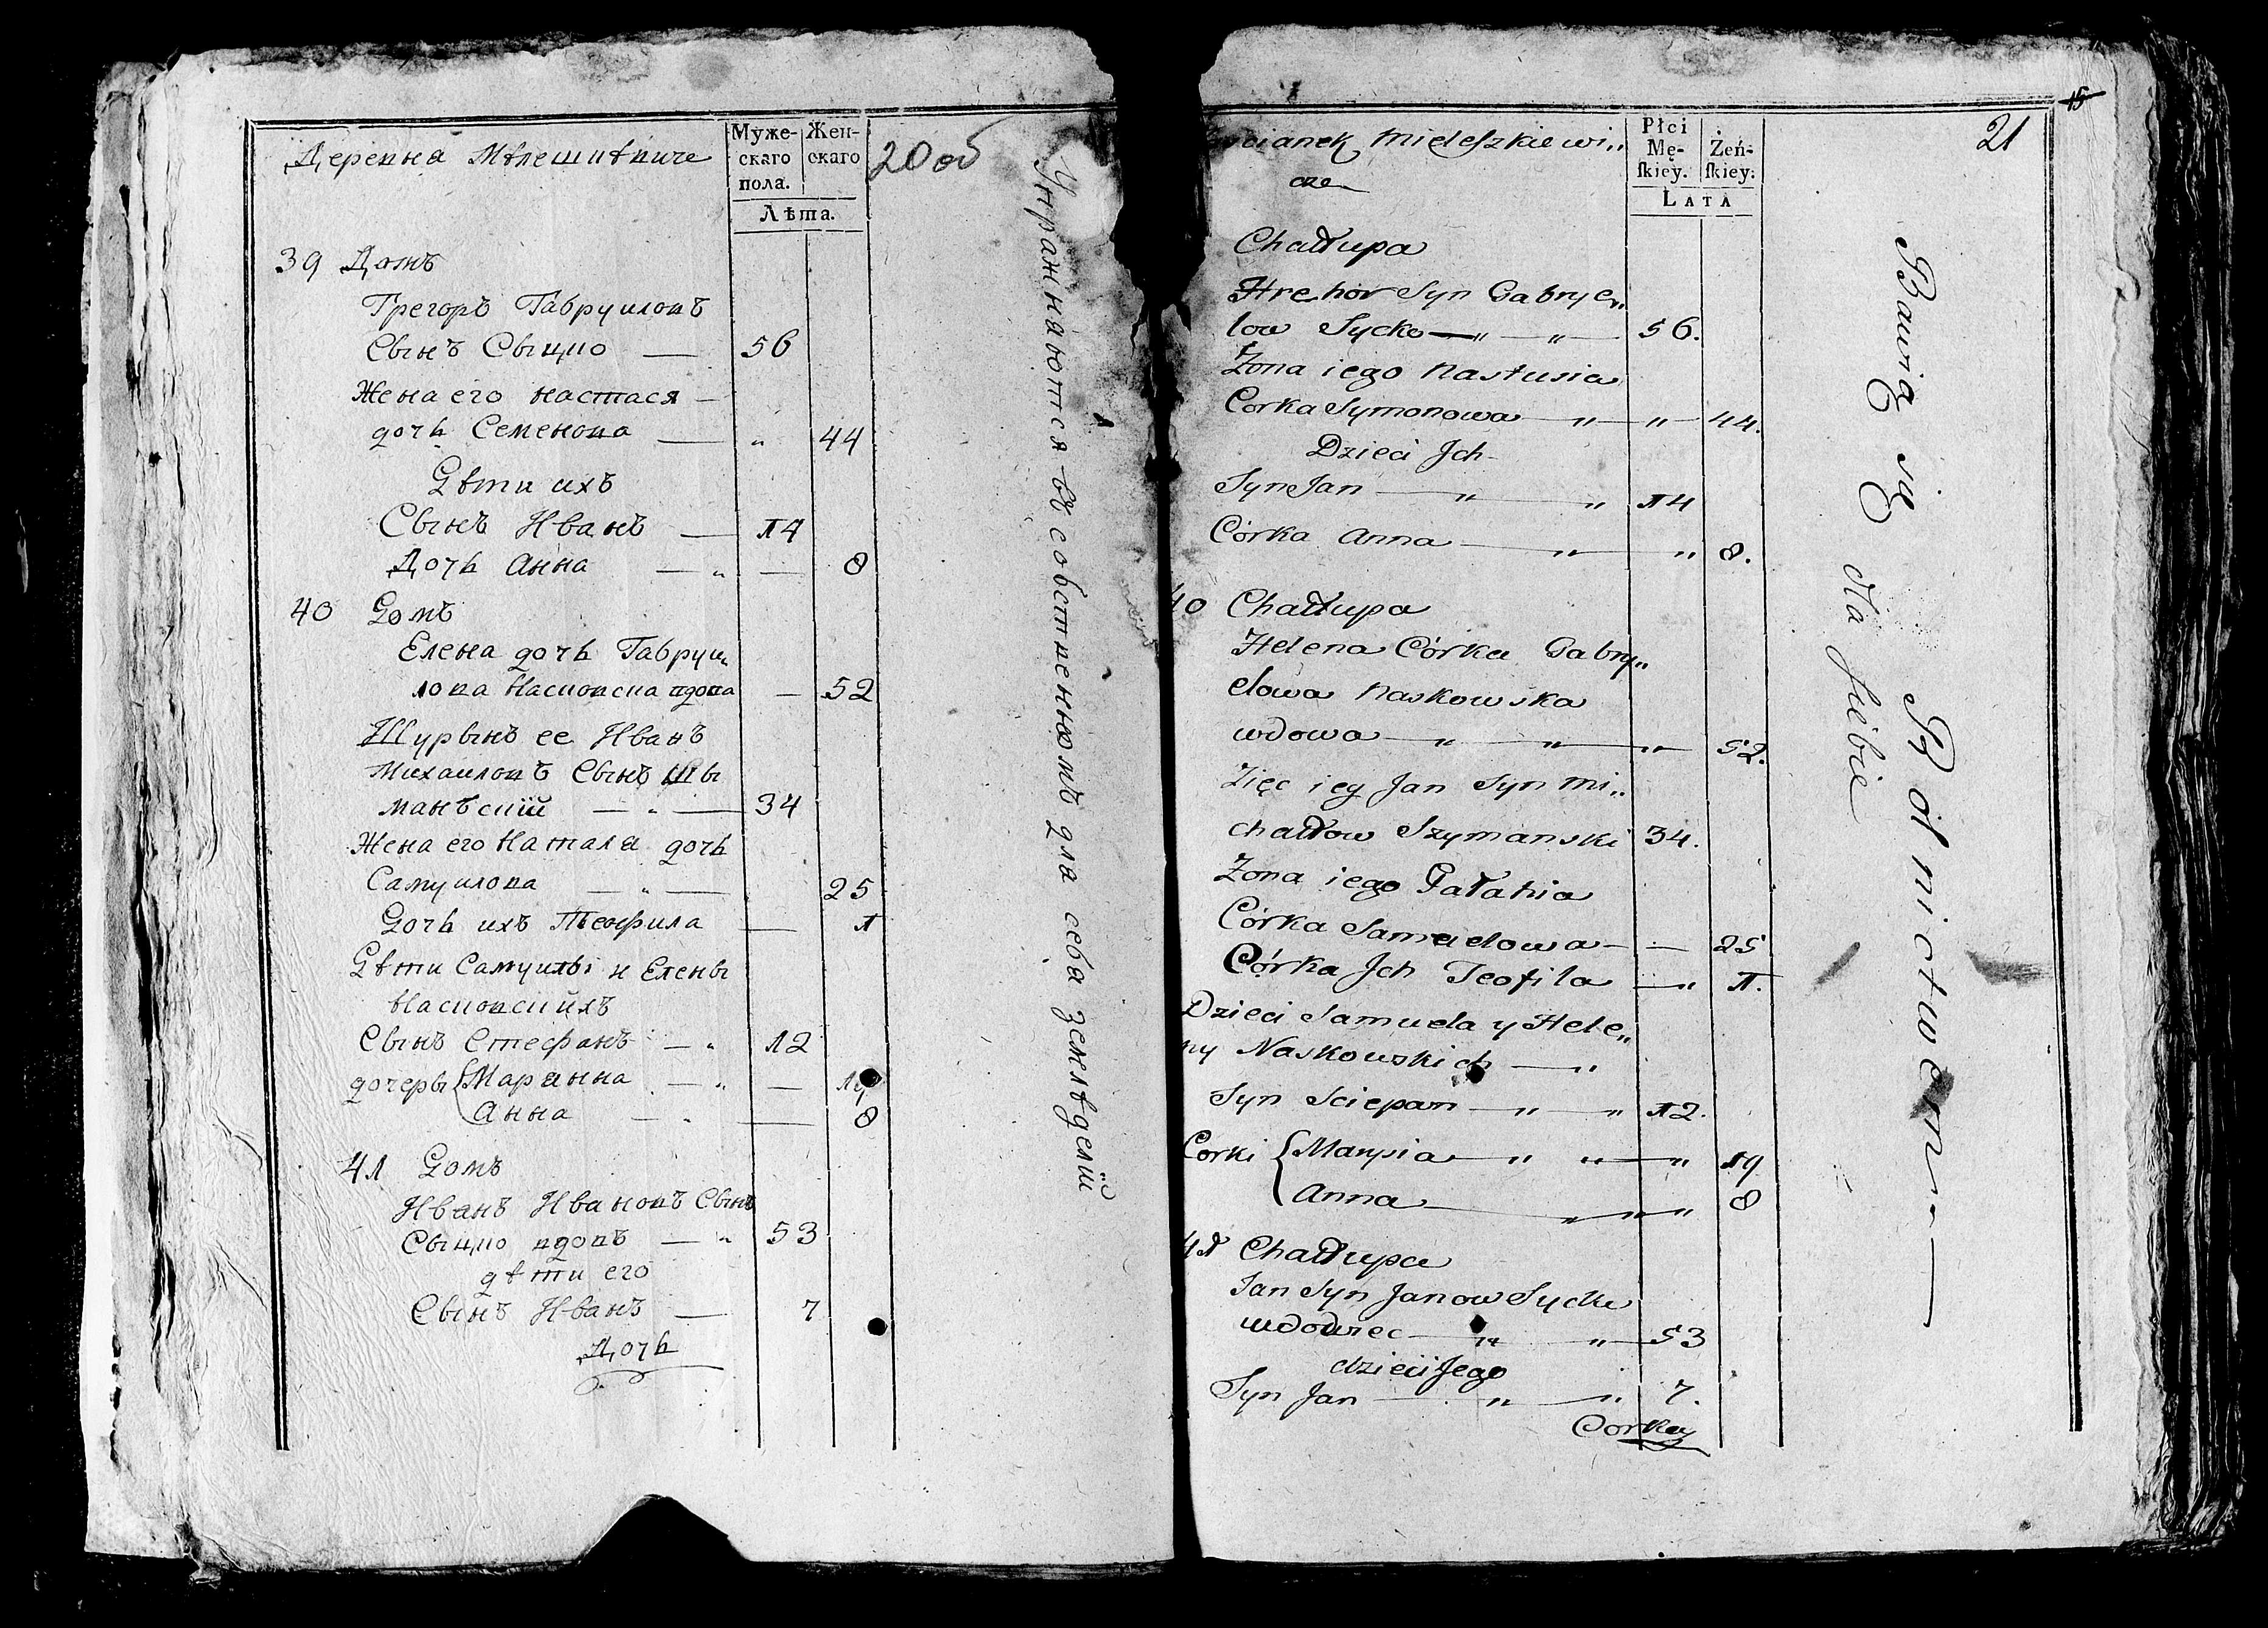 Деревня Мѣлешкѣвиче
Муже-
скаго
пола.
Жен-
скаго
Лѣта.
20 об
39 Домъ
Грегоръ Гавруиловъ
Сынъ Сыцко — 56
Жена его настася —
дочь Семенова — " 44
Дѣти ихъ
Сынъ Иванъ — 14
Дочь Анна — " — 8
40 Домъ
Елена дочь Гавруи„
лова Насковска вдова — 52
Шурынъ ее Иванъ
Михаиловъ Сынъ Шы
манъскій — " — 34
Жена его Наталя дочь
Самуилова — " — 25
Дочь ихъ Теофила — 1
Дѣти Самуилы и Елены
Насковскихъ
Сынъ Стефанъ — " 12
дочеры { Марянна — " — 19
Анна — " — 8
41 Домъ
Иванъ Ивановъ Сынъ
Сыцко вдовъ — " 53
дѣти его
Сынъ Иванъ — 7
Дочь
Упражнаются въ собственномъ для себя земледелій
scianek Mieleszkiewi„
cze
Płci
Mę-
skiey.
Żeń-
skiey:
LATA
15
21
Chałłupa
Hrehor Syn Gabrye„
low Sycko — " — " — 56.
Żona iego Nastusia
Corka Symonowa — " — " — 44.
Dzieci Jch
Syn Jan — " — " 14
Córka Anna — " — " 8.
40 Chałłupa
Helena Córka Gabry„
elowa Naskowska
wdowa — " — " — " — 52.
Zięc iey Jan Syn Mi„
chałłow Szymanski 34.
Żona iego Gałahia
Córka Samuelowa — — 25
Córka Jch Teofila — " 1.
Dzieci Samuela y Hele„
ny Naskowskich — "
Syn Sciepan — " — " 12.
Corki { Maryia — " " — " 19
Anna — " " " 8
41 Chałłupa
Jan Syn Janow Sycko
wdowiec — " — " — 53
dzieci Jego
Syn Jan — " — " 7.
Corka
Bawią się Rolnictwem —
dla siebie